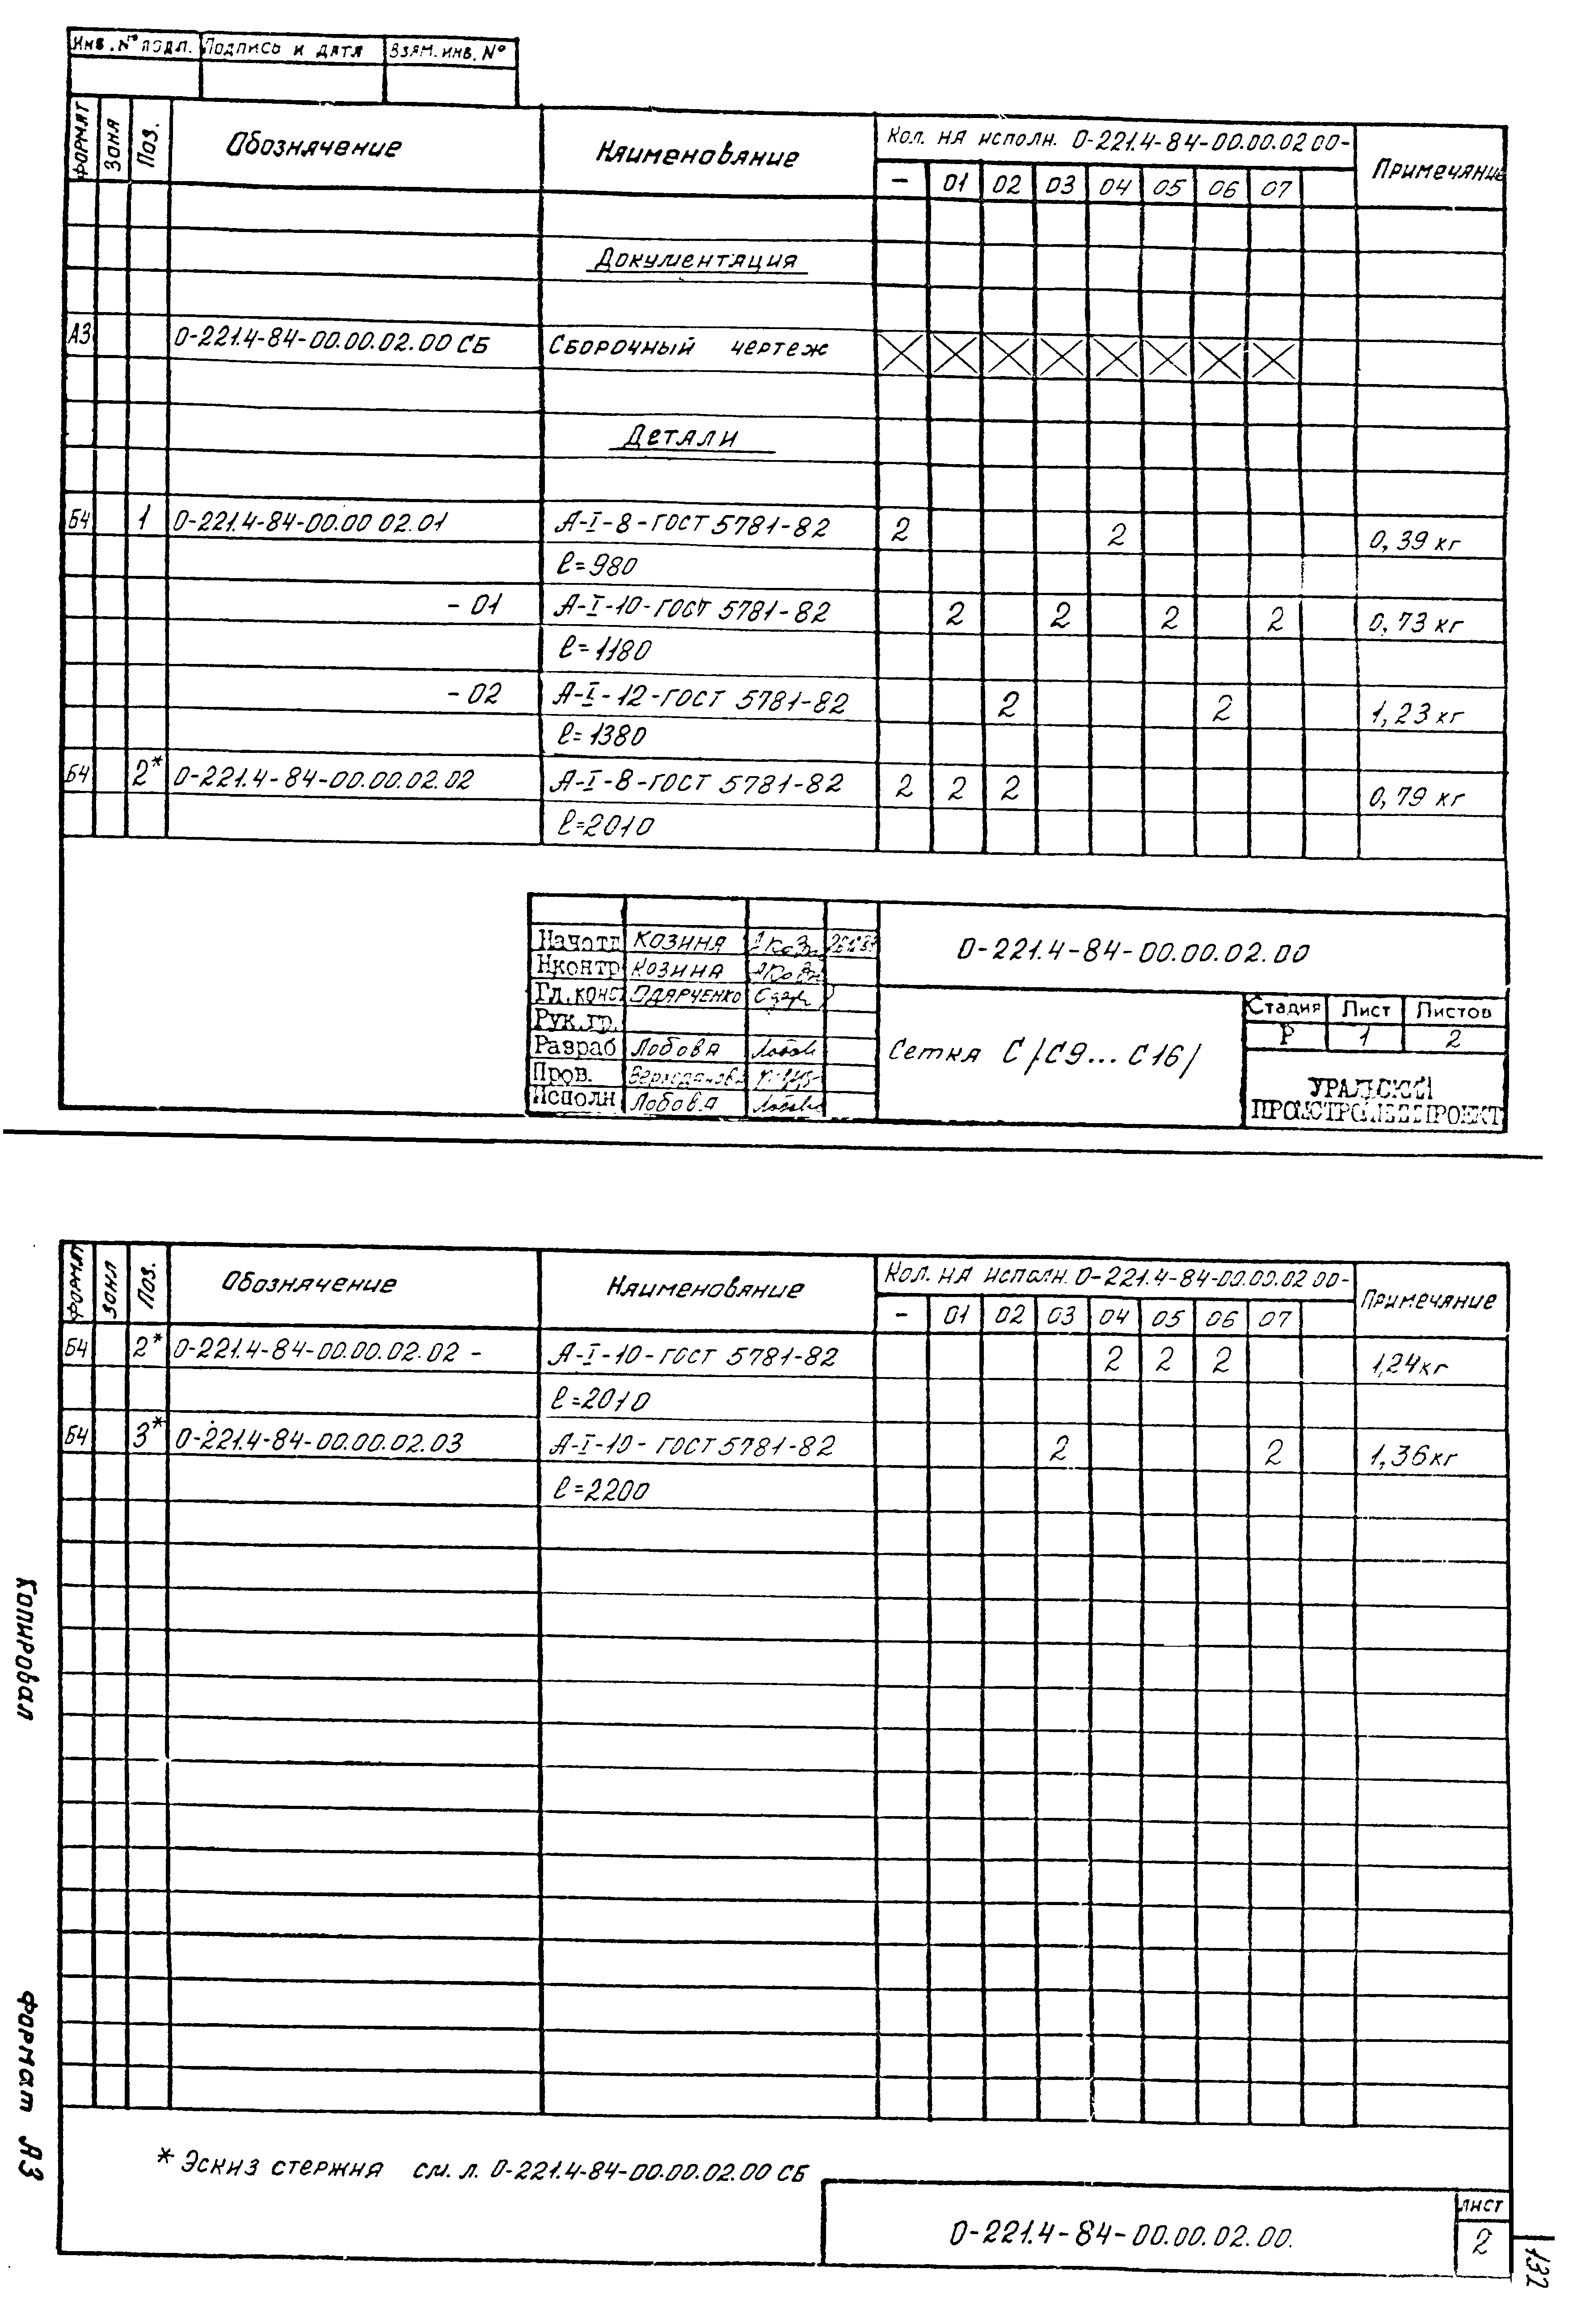 Инв. № подл. Подпись и дата Взам. инв. №
Формат Зона Поз. Обозначение Наименование Кол. на исполн. 0-221.4-84-00.00.02 00- Примечание
– 01 02 03 04 05 06 07
Документация
А3 0-221.4-84-00.00.02.00 СБ Сборочный чертеж
Детали
Б4 1 0-221.4-84-00.00 02.01 А-I-8-ГОСТ 5781-82 2 2 0,39 кг
ℓ=980
- 01 А-I-10-ГОСТ 5781-82 2 2 2 2 0,73 кг
ℓ=1180
- 02 А-I-12-ГОСТ 5781-82 2 2 1,23 кг
ℓ=1380
Б4 2* 0-221.4-84-00.00.02.02 А-I-8-ГОСТ 5781-82 2 2 2 0,79 кг
ℓ=2010
Нач отд Козина
Н контр Козина
Гл. конс Одарченко
Рук. гр.
Разраб Лобова
Пров.
Исполн Лобова
0-221.4-84-00.00.02.00
Сетка С/С9...С16/
Стадия Лист Листов
Р 1 2
УРАЛЬСКИЙ
ПРОМСТРОЙНИИПРОЕКТ
Формат Зона Поз. Обозначение Наименование Кол. на исполн. 0-221.4-84-00.00.02 00- Примечание
– 01 02 03 04 05 06 07
Б4 2* 0-221.4-84-00.00.02.02 - А-I-10-ГОСТ 5781-82 2 2 2 1,24кг
ℓ=2010
Б4 3* 0-221.4-84-00.00.02.03 А-I-10-ГОСТ 5781-82 2 2 1,36кг
ℓ=2200
* Эскиз стержня см. л. 0-221.4-84-00.00.02.00 СБ
0-221.4-84-00.00.02.00.
Лист
2
Копировал
Формат А3
132